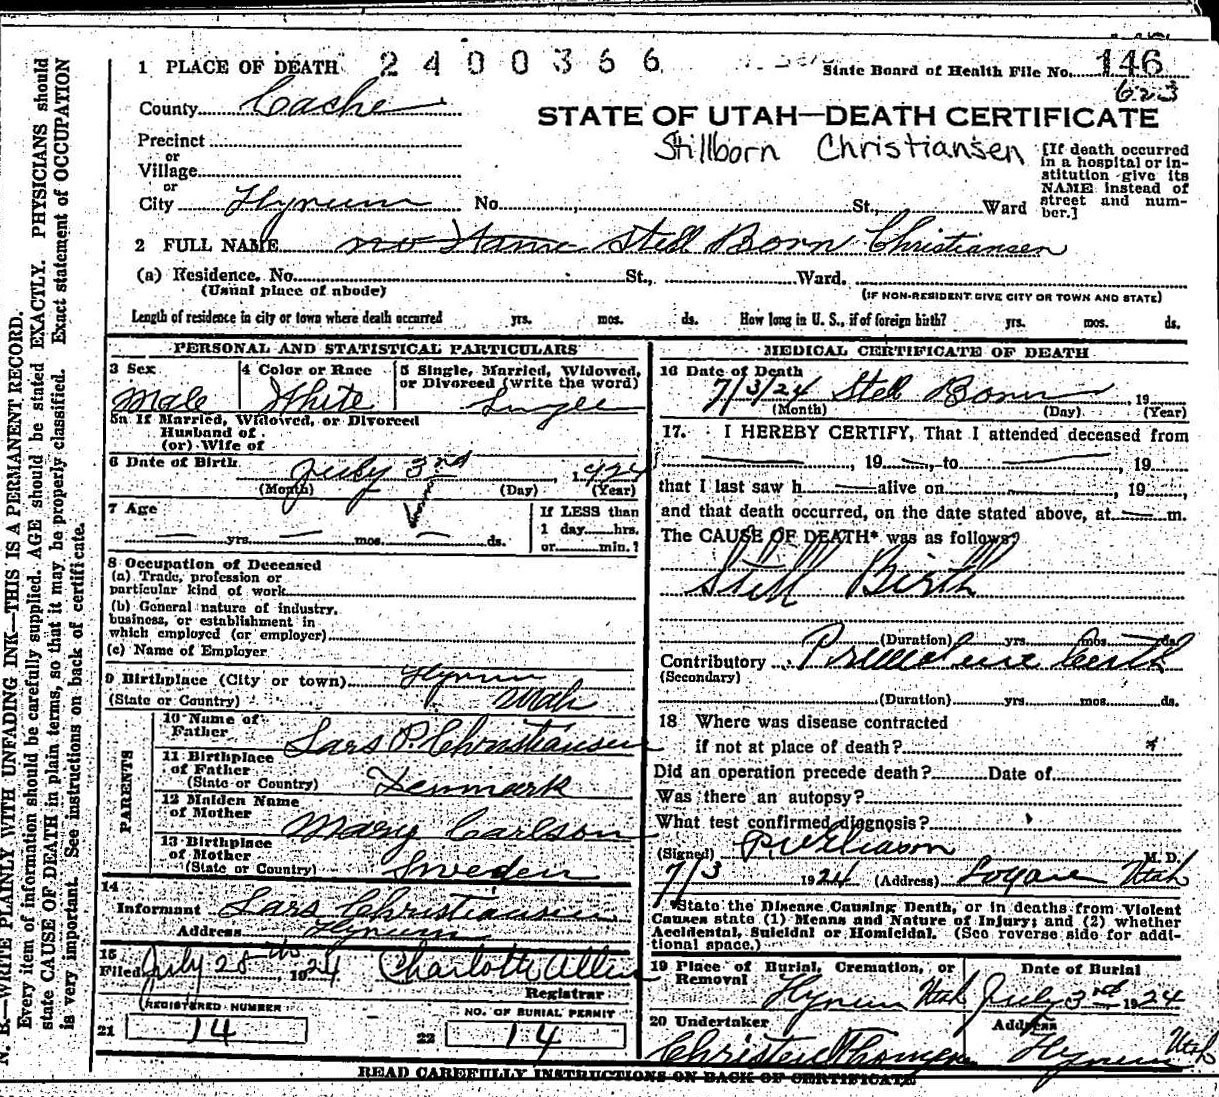 1 PLACE OF DEATH 2400366 State Board of Health File No. 146
623
County Cache
STATE OF UTAH—DEATH CERTIFICATE
Stillborn Christiansen
[If death occurred in a hospital or institution give its NAME instead of street and number.]
Precinct
or
Village
or
City Hyrum No. St., Ward
2 FULL NAME no Name Still Born Christiansen
(a) Residence. No. St., Ward.
(Usual place of abode) (IF NON-RESIDENT GIVE CITY OR TOWN AND STATE)
Length of residence in city or town where death occurred yrs. mos. ds. How long in U. S., if of foreign birth? yrs. mos. ds.
PERSONAL AND STATISTICAL PARTICULARS
3 Sex
Male
4 Color or Race
White
5 Single, Married, Widowed, or Divorced (write the word)
Single
5a If Married, Widowed, or Divorced
Husband of
(or) Wife of
6 Date of Birth July 3rd 1924
(Month) (Day) (Year)
7 Age
yrs. mos. ds.
If LESS than
1 day hrs.
or min.?
8 Occupation of Deceased
(a) Trade, profession or
particular kind of work
(b) General nature of industry,
business, or establishment in
which employed (or employer)
(c) Name of Employer
9 Birthplace (City or town) Hyrum
(State or Country) Utah
PARENTS
10 Name of
Father Lars P. Christiansen
11 Birthplace
of Father
(State or Country) Denmark
12 Maiden Name
of Mother Mary Carlson
13 Birthplace
of Mother
(State or Country) Sweden
14
Informant Lars Christiansen
Address Hyrum
15
Filed July 28 1924 Charlotte Allen
Registrar
REGISTERED NUMBER
21 14
NO. OF BURIAL PERMIT
22 14
MEDICAL CERTIFICATE OF DEATH
16 Date of Death
7/3/24 Still Born, 19
(Month) (Day) (Year)
17. I HEREBY CERTIFY, That I attended deceased from
, 19 , to , 19 ,
that I last saw h alive on , 19 ,
and that death occurred, on the date stated above, at m.
The CAUSE OF DEATH* was as follows?
Still Birth
(Duration) yrs. mos. ds.
Contributory Premature birth
(Secondary)
(Duration) yrs. mos. ds.
18 Where was disease contracted
if not at place of death?
Did an operation precede death? Date of
Was there an autopsy?
What test confirmed diagnosis?
(Signed) Eliason M. D.
7/3 1924 (Address) Logan Utah
*State the Disease Causing Death, or in deaths from Violent
Causes state (1) Means and Nature of Injury; and (2) whether
Accidental, Suicidal or Homicidal. (See reverse side for addi-
tional space.)
19 Place of Burial, Cremation, or Removal
Hyrum Utah
Date of Burial
July 3rd 1924
20 Undertaker
Christen Thomsen
Address
Hyrum Utah
READ CAREFULLY INSTRUCTIONS ON BACK OF CERTIFICATE
N. B.—WRITE PLAINLY WITH UNFADING INK—THIS IS A PERMANENT RECORD.
Every item of information should be carefully supplied. AGE should be stated EXACTLY. PHYSICIANS should
state CAUSE OF DEATH in plain terms, so that it may be properly classified. Exact statement of OCCUPATION
is very important. See instructions on back of certificate.